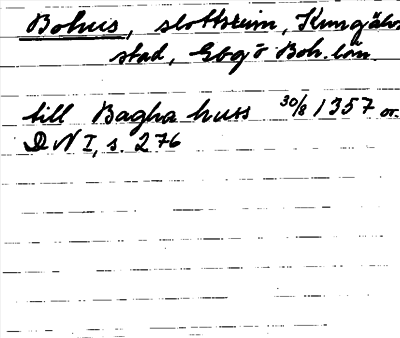 Bohus, slottsruin, Kungälvs
stad, Gbg o Boh. län.
till Bagha huss 30/8 1357 or.
DN I, s. 276